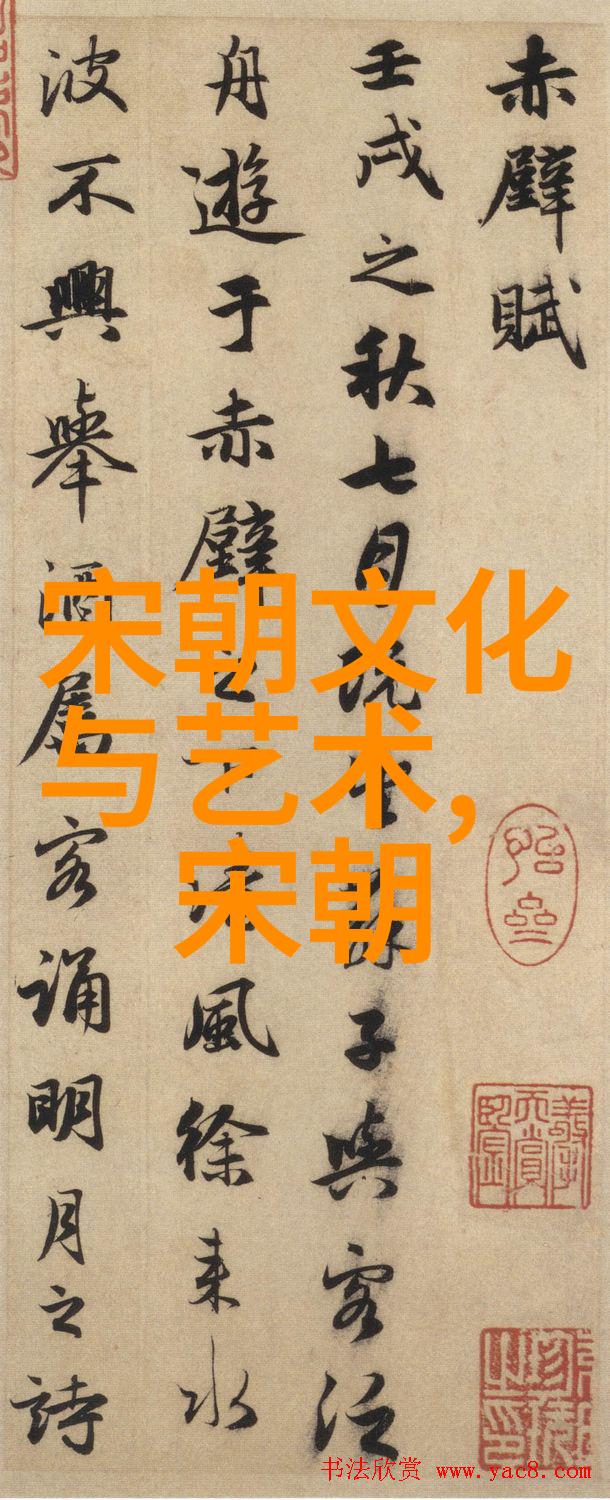 赤壁賦
壬戌之秋七月既望蘇子與客泛
舟遊于赤壁之下清風徐來水
波不興舉酒屬客誦明月之詩
宋朝文化
与艺术,
宋朝
书法欣赏 www.yac8.com